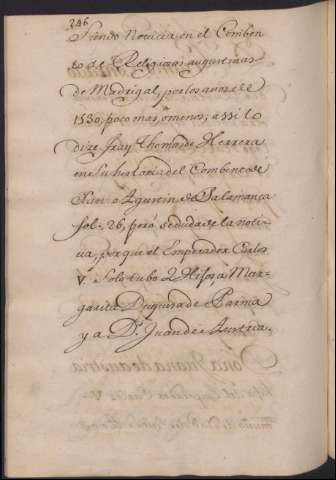 346
Siendo Novicia en el Comben
to de Religiosas augustinas
de Madrigal, por los años de
1530, poco mas, ò menos; assi lo
dize fray Thomas de Herrera
en su historia del Combento de
San Agustin de Salamanca
fol. 26, però se duda de la noti-
cia, porque el Emperador Carlos
V. Solo tubo 2 Hijos, à Mar-
garita Duquesa de Parma
y a Dn. Juan de Austria.